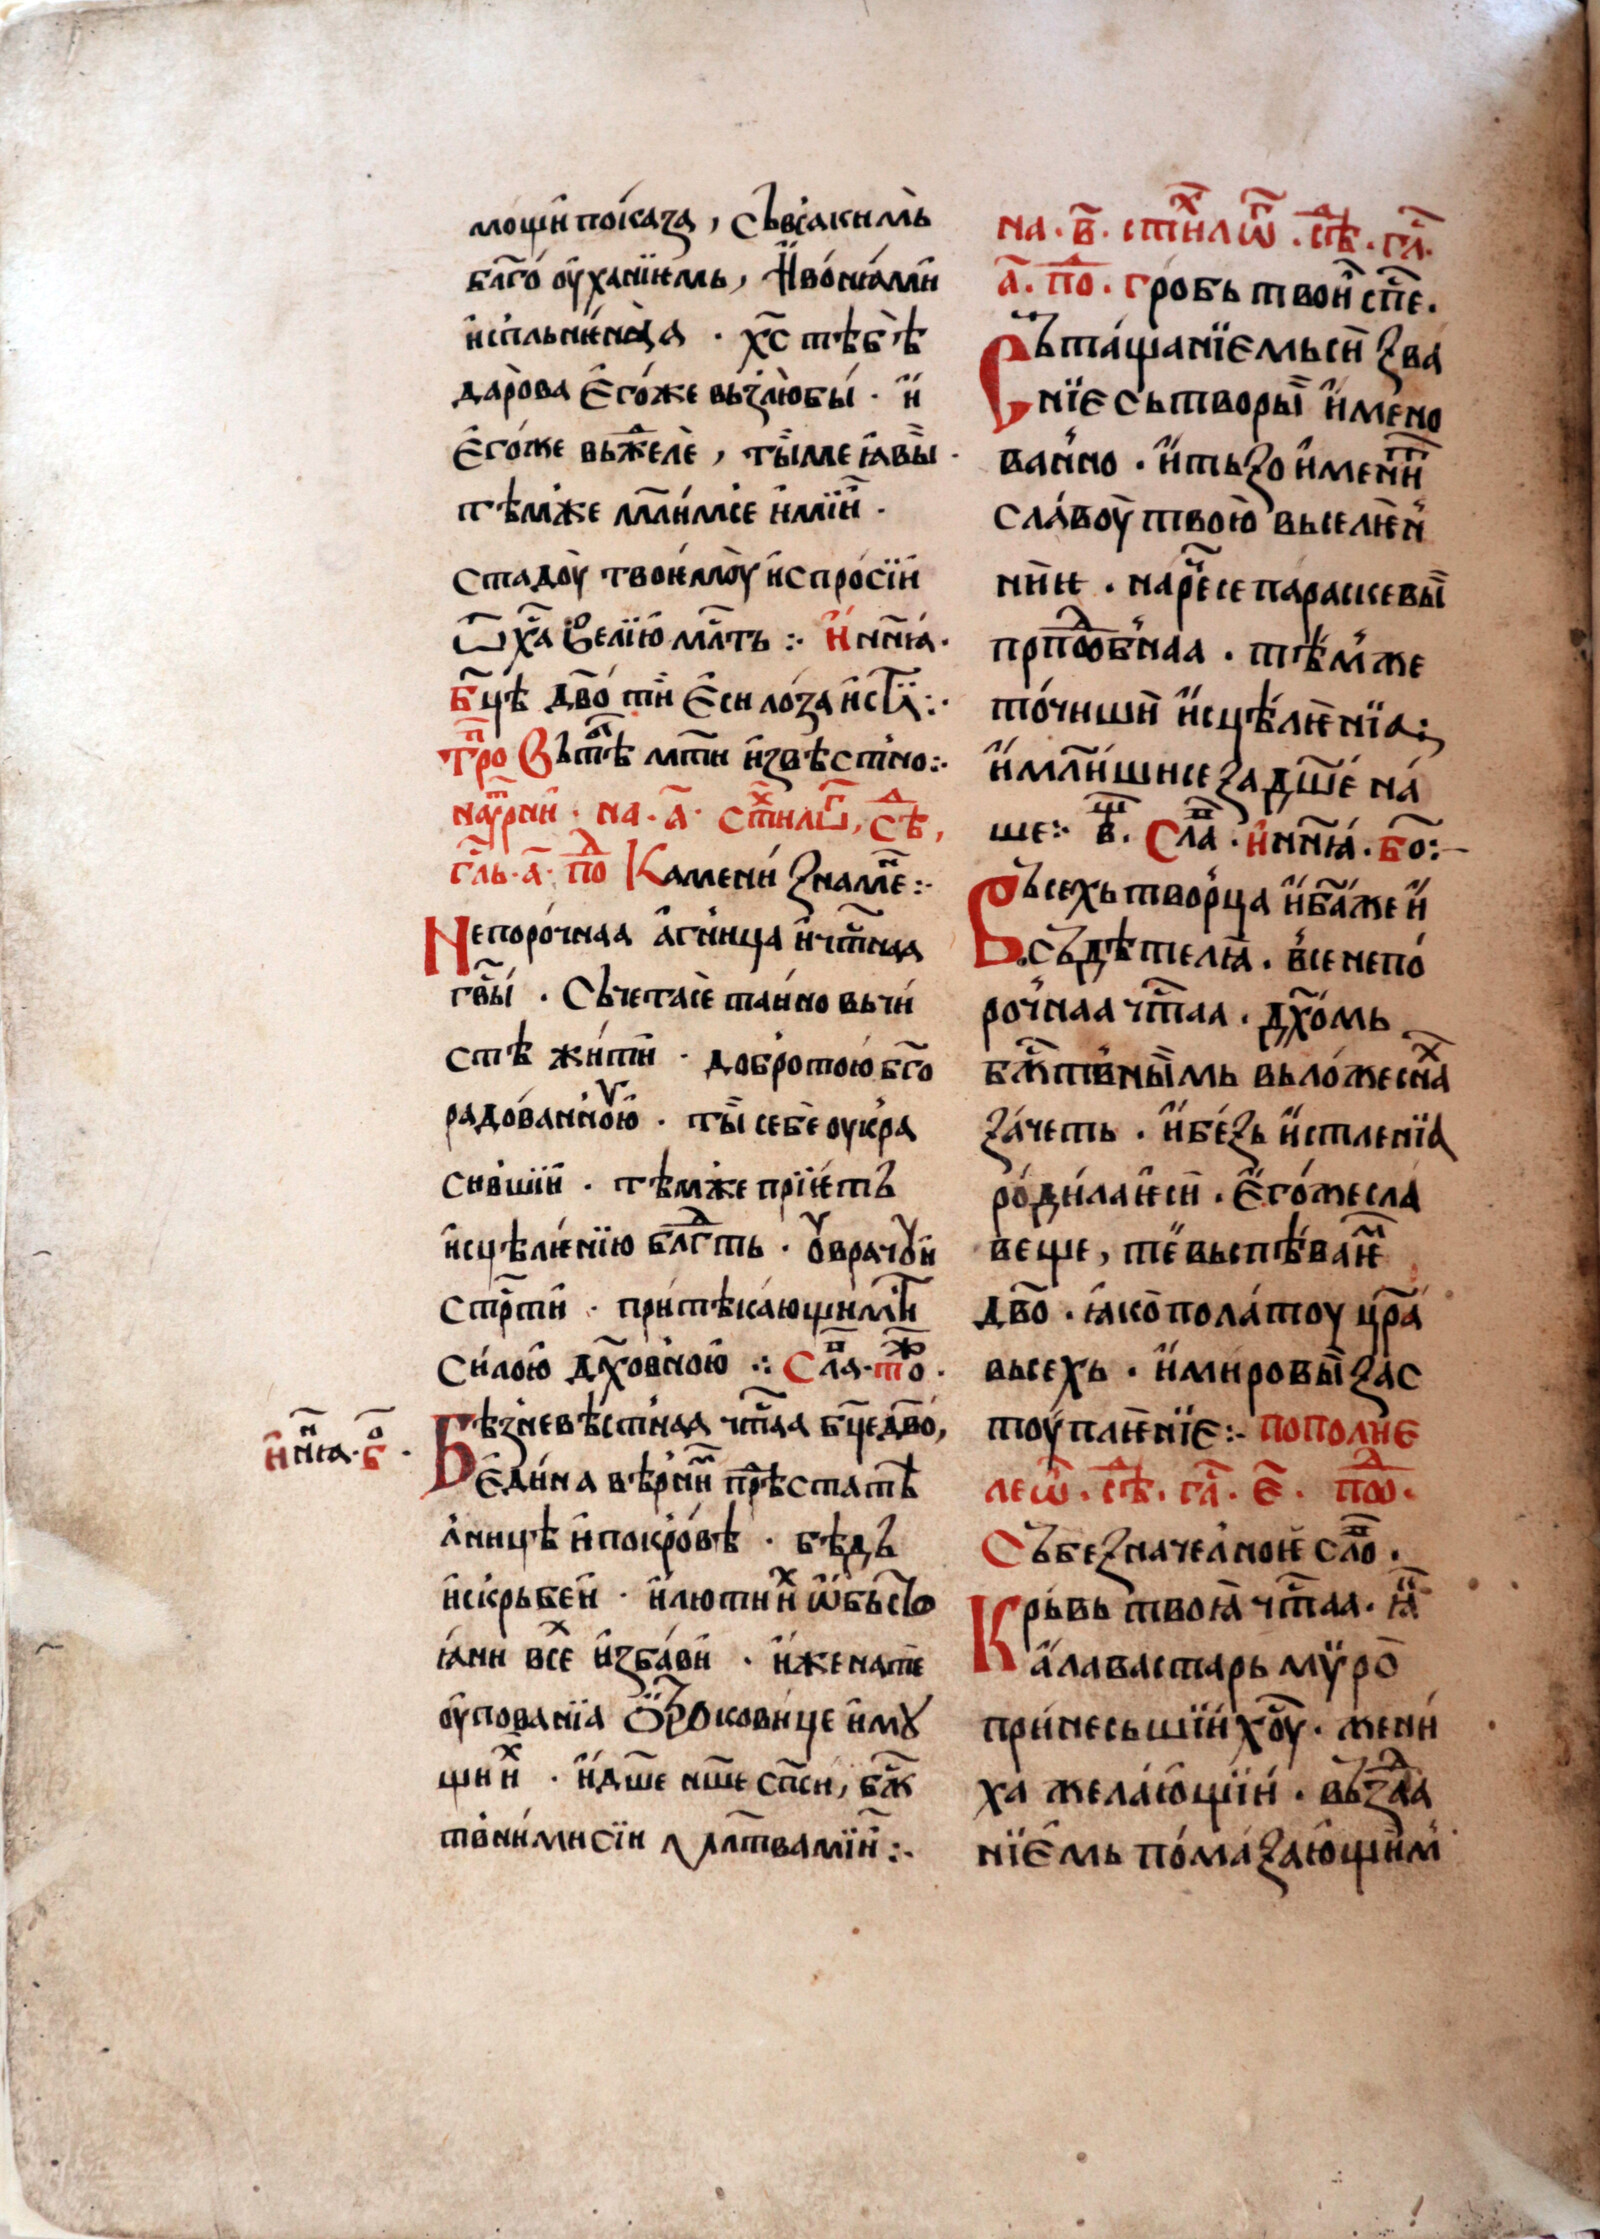 мощи̑ пока́за , Съвса́кимь
бл҃го́ оу҆ха́нїѥмь , И҆во́нꙗ́ми
и҆спльнѥ́ннаа · хс҃ тѣбѣ̀
да́рова є҆го́же вьзлю́бы · и҆
є҆го́же вьжⷣелѐ , ты́ме ꙗ҆вы̀ ·
тѣ́мже мл҃и́мсе и҆мїи ·
стадо̀у твоѥмо̀у и҆спро́сїи
ѿ ха҃ велїю̀ млⷭ҇ть :· и҆ нн҃ꙗ ·
бц҃ѣ дв҃о ти̑ є҆си ло́за и҆стⷩ҇а :·
троⷫ҇ Вьⷧ҇тѣ мт҃и и҆звѣстно :·
наоутⷬ҇рни · на · а҃ · стⷯи́лоⷢ҇ , сѣⷣ ,
гл҃ь · а҃ · поⷣ Ка́мени знамеⷩ҇ :·
Непоро́чнаа а҆гница и҆чтⷭ҇наа
гв҃ы · Съчета́се таино вьчи
стѣ жи́ти · добро́тою бг҃о
ра́дованною · ты̀ себѐ оукра
си́вшїи · тѣ́мже прїѥть
и҆сцѣлѥ́нїю блгⷣть · оу҆врачоуи
стрⷭ҇ти · при́тѣка́ющимⷯ
си́лою дх҃о́вною :· слаⷡ · тоⷤ ·
Бѣзневѣстнаа чтⷭ҇аа бц҃едв҃о ,
и҆ нн҃ꙗ · боⷢ ·
є҆ди́на вѣ́рниⷨ прⷣѣстатѣ
лницѣ и҆покро́вѣ · бѣдь
и҆скрьбеи · и҆лютииⷯ ѡ҆бьстоꙗ
ꙗ҆ни всеⷯ и҆зба́ви · и҆же натѐ
оу҆пова́нїа ѿроковице и҆мꙋ
щииⷯ · и҆ дш҃е нш҃е сп҃си , бжⷭ҇
твни́ми сїи млтⷡ҇амїи :·
на · в҃ · стⷯи́лѡⷢ · сѣⷣ · гл҃ ·
а҃ · поⷣ · гробь твои сп҃се ·
Съта́щанїємьси̑ зва
нїє сьтворы̀ и҆ме́но
ва́нно · и҆тьзо и҆мениⷮ
сла́воу̀ твою̀ вьселѥн
ниѥ · нареⷱ҇се параскевы̀
прпⷣо́бнаа · тѣ́мже
то́чиши̑ и҆сцѣлѥ̀нїа :
и҆мл҃и́шисе за дш҃е на́
ше :· в҃ⷳ · слаⷡ · и҆ нн҃ꙗ · бо҃ :·
Вьсехь творца и҆ба҃же и҆
съдѣтелꙗ҆ · все непо́
ро́чнаа чтⷭ҇аа · дх҃омь
бжⷭ҇твны̀мь вьло́жеснаⷯ
за́четь · и҆бе́зь и҆стленїа
ро́ди́ла ѥ҆си̑ · є҆го́же сла
веще , те вьспѣваѥⷨ
дв҃о · ꙗ҆ко пола́тоу цр҃а
вьсехь · и҆ми́ровы̀ зас
тоу́плѥ̀нїє :· по полиє
леѡ҇ · сѣⷣ · гл҃ · є҃ · поⷣ ·
Събезначелноѥ слоⷡ ·
Крьвь твоꙗ чтⷭ҇аа · ꙗ҆ⷦ
а҆лавастарь мѵ́ро
при́несьшїи хо҃у · жени
ха жела́ющїи · вьздⷣаа
нїємь по́ма́зающи́м